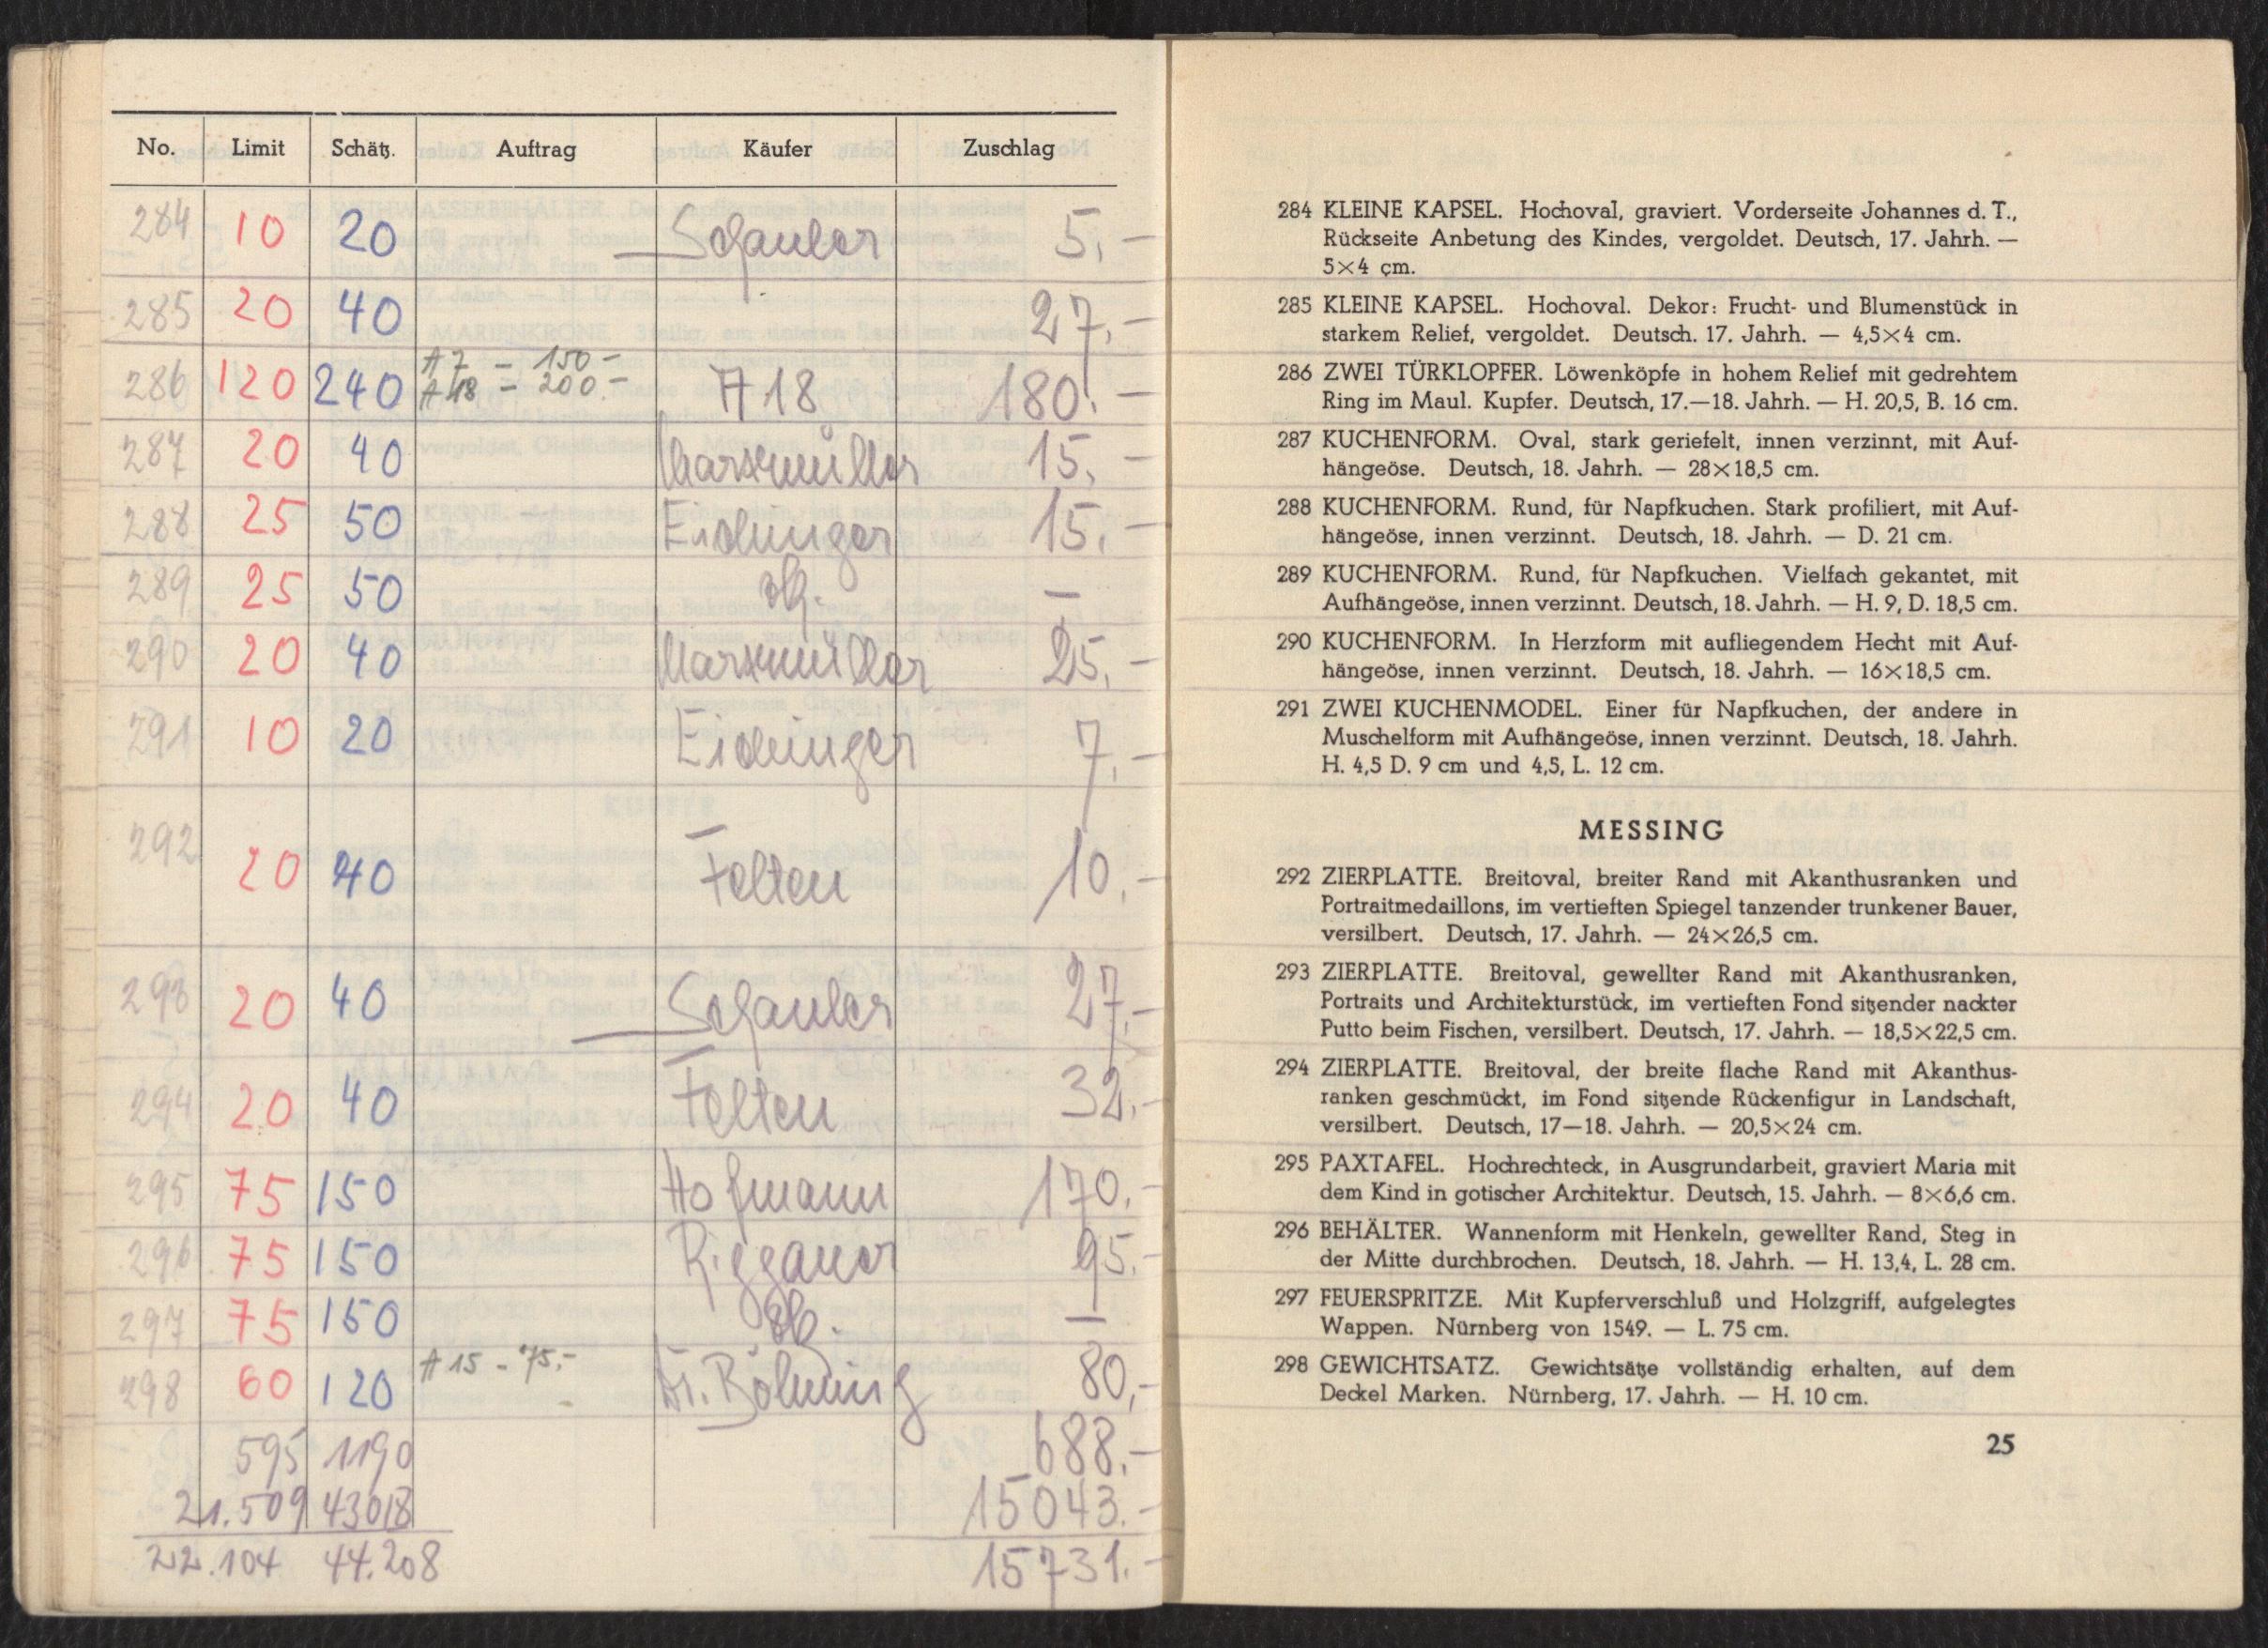 No. Limit Schätz. Auftrag Käufer Zuschlag
284 10 20 Schauler 5,-
285 20 40 27,-
A 7 - 150 -
286 120 240 A 18 - 200.- A 18 180.-
287 20 40 15,-
288 25 50 Eichinger 15,-
289 25 50 —
290 20 40 25,-
291 10 20 Eichinger 7,-
292 20 40 Felten 10.-
293 20 40 Schauler 27,-
294 20 40 Felten 32,-
295 75 150 Hofmann 170.-
296 75 150 Riggauer 95.-
297 75 150 —
298 60 120 A 15 - 75,- Dr. Böhming 80,-
595 1190 688.-
21.509 43018 15043.-
22.104 44.208 15731.-
284 KLEINE KAPSEL. Hochoval, graviert. Vorderseite Johannes d. T.,
Rückseite Anbetung des Kindes, vergoldet. Deutsch, 17. Jahrh. —
5×4 cm.
285 KLEINE KAPSEL. Hochoval. Dekor: Frucht- und Blumenstück in
starkem Relief, vergoldet. Deutsch. 17. Jahrh. — 4,5×4 cm.
286 ZWEI TÜRKLOPFER. Löwenköpfe in hohem Relief mit gedrehtem
Ring im Maul. Kupfer. Deutsch, 17.—18. Jahrh. — H. 20,5, B. 16 cm.
287 KUCHENFORM. Oval, stark geriefelt, innen verzinnt, mit Auf-
hängeöse. Deutsch, 18. Jahrh. — 28×18,5 cm.
288 KUCHENFORM. Rund, für Napfkuchen. Stark profiliert, mit Auf-
hängeöse, innen verzinnt. Deutsch, 18. Jahrh. — D. 21 cm.
289 KUCHENFORM. Rund, für Napfkuchen. Vielfach gekantet, mit
Aufhängeöse, innen verzinnt. Deutsch, 18. Jahrh. — H. 9, D. 18,5 cm.
290 KUCHENFORM. In Herzform mit aufliegendem Hecht mit Auf-
hängeöse, innen verzinnt. Deutsch, 18. Jahrh. — 16×18,5 cm.
291 ZWEI KUCHENMODEL. Einer für Napfkuchen, der andere in
Muschelform mit Aufhängeöse, innen verzinnt. Deutsch, 18. Jahrh.
H. 4,5 D. 9 cm und 4,5, L. 12 cm.
MESSING
292 ZIERPLATTE. Breitoval, breiter Rand mit Akanthusranken und
Portraitmedaillons, im vertieften Spiegel tanzender trunkener Bauer,
versilbert. Deutsch, 17. Jahrh. — 24×26,5 cm.
293 ZIERPLATTE. Breitoval, gewellter Rand mit Akanthusranken,
Portraits und Architekturstück, im vertieften Fond sitzender nackter
Putto beim Fischen, versilbert. Deutsch, 17. Jahrh. — 18,5×22,5 cm.
294 ZIERPLATTE. Breitoval, der breite flache Rand mit Akanthus-
ranken geschmückt, im Fond sitzende Rückenfigur in Landschaft,
versilbert. Deutsch, 17—18. Jahrh. — 20,5×24 cm.
295 PAXTAFEL. Hochrechteck, in Ausgrundarbeit, graviert Maria mit
dem Kind in gotischer Architektur. Deutsch, 15. Jahrh. — 8×6,6 cm.
296 BEHÄLTER. Wannenform mit Henkeln, gewellter Rand, Steg in
der Mitte durchbrochen. Deutsch, 18. Jahrh. — H. 13,4, L. 28 cm.
297 FEUERSPRITZE. Mit Kupferverschluß und Holzgriff, aufgelegtes
Wappen. Nürnberg von 1549. — L. 75 cm.
298 GEWICHTSATZ. Gewichtsätze vollständig erhalten, auf dem
Deckel Marken. Nürnberg, 17. Jahrh. — H. 10 cm.
25